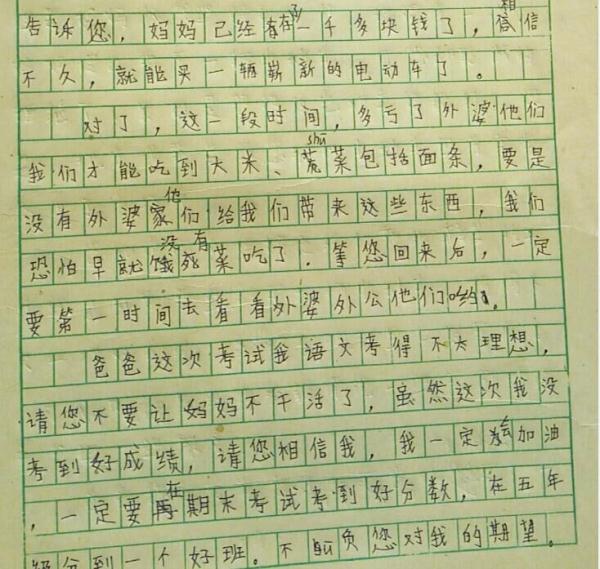 告诉您，妈妈已经有存了一千多块钱了，相信
不久，就能买一辆崭新的电动车了。
对了，这一段时间，多亏了外婆他们
我们才能吃到大米、shū菜包括面条，要是
没有外婆他们给我们带来这些东西，我们
恐怕早就没有菜吃了．等您回来后，一定
要第一时间去看看外婆外公他们哟。
爸爸这次考试我语文考得不太理想，
请您不要让妈妈不干活了，虽然这次我没
考到好成绩，请您相信我，我一定会加油
，一定要在期末考试考到好分数，在五年
级分到一个好班。不负您对我的期望。